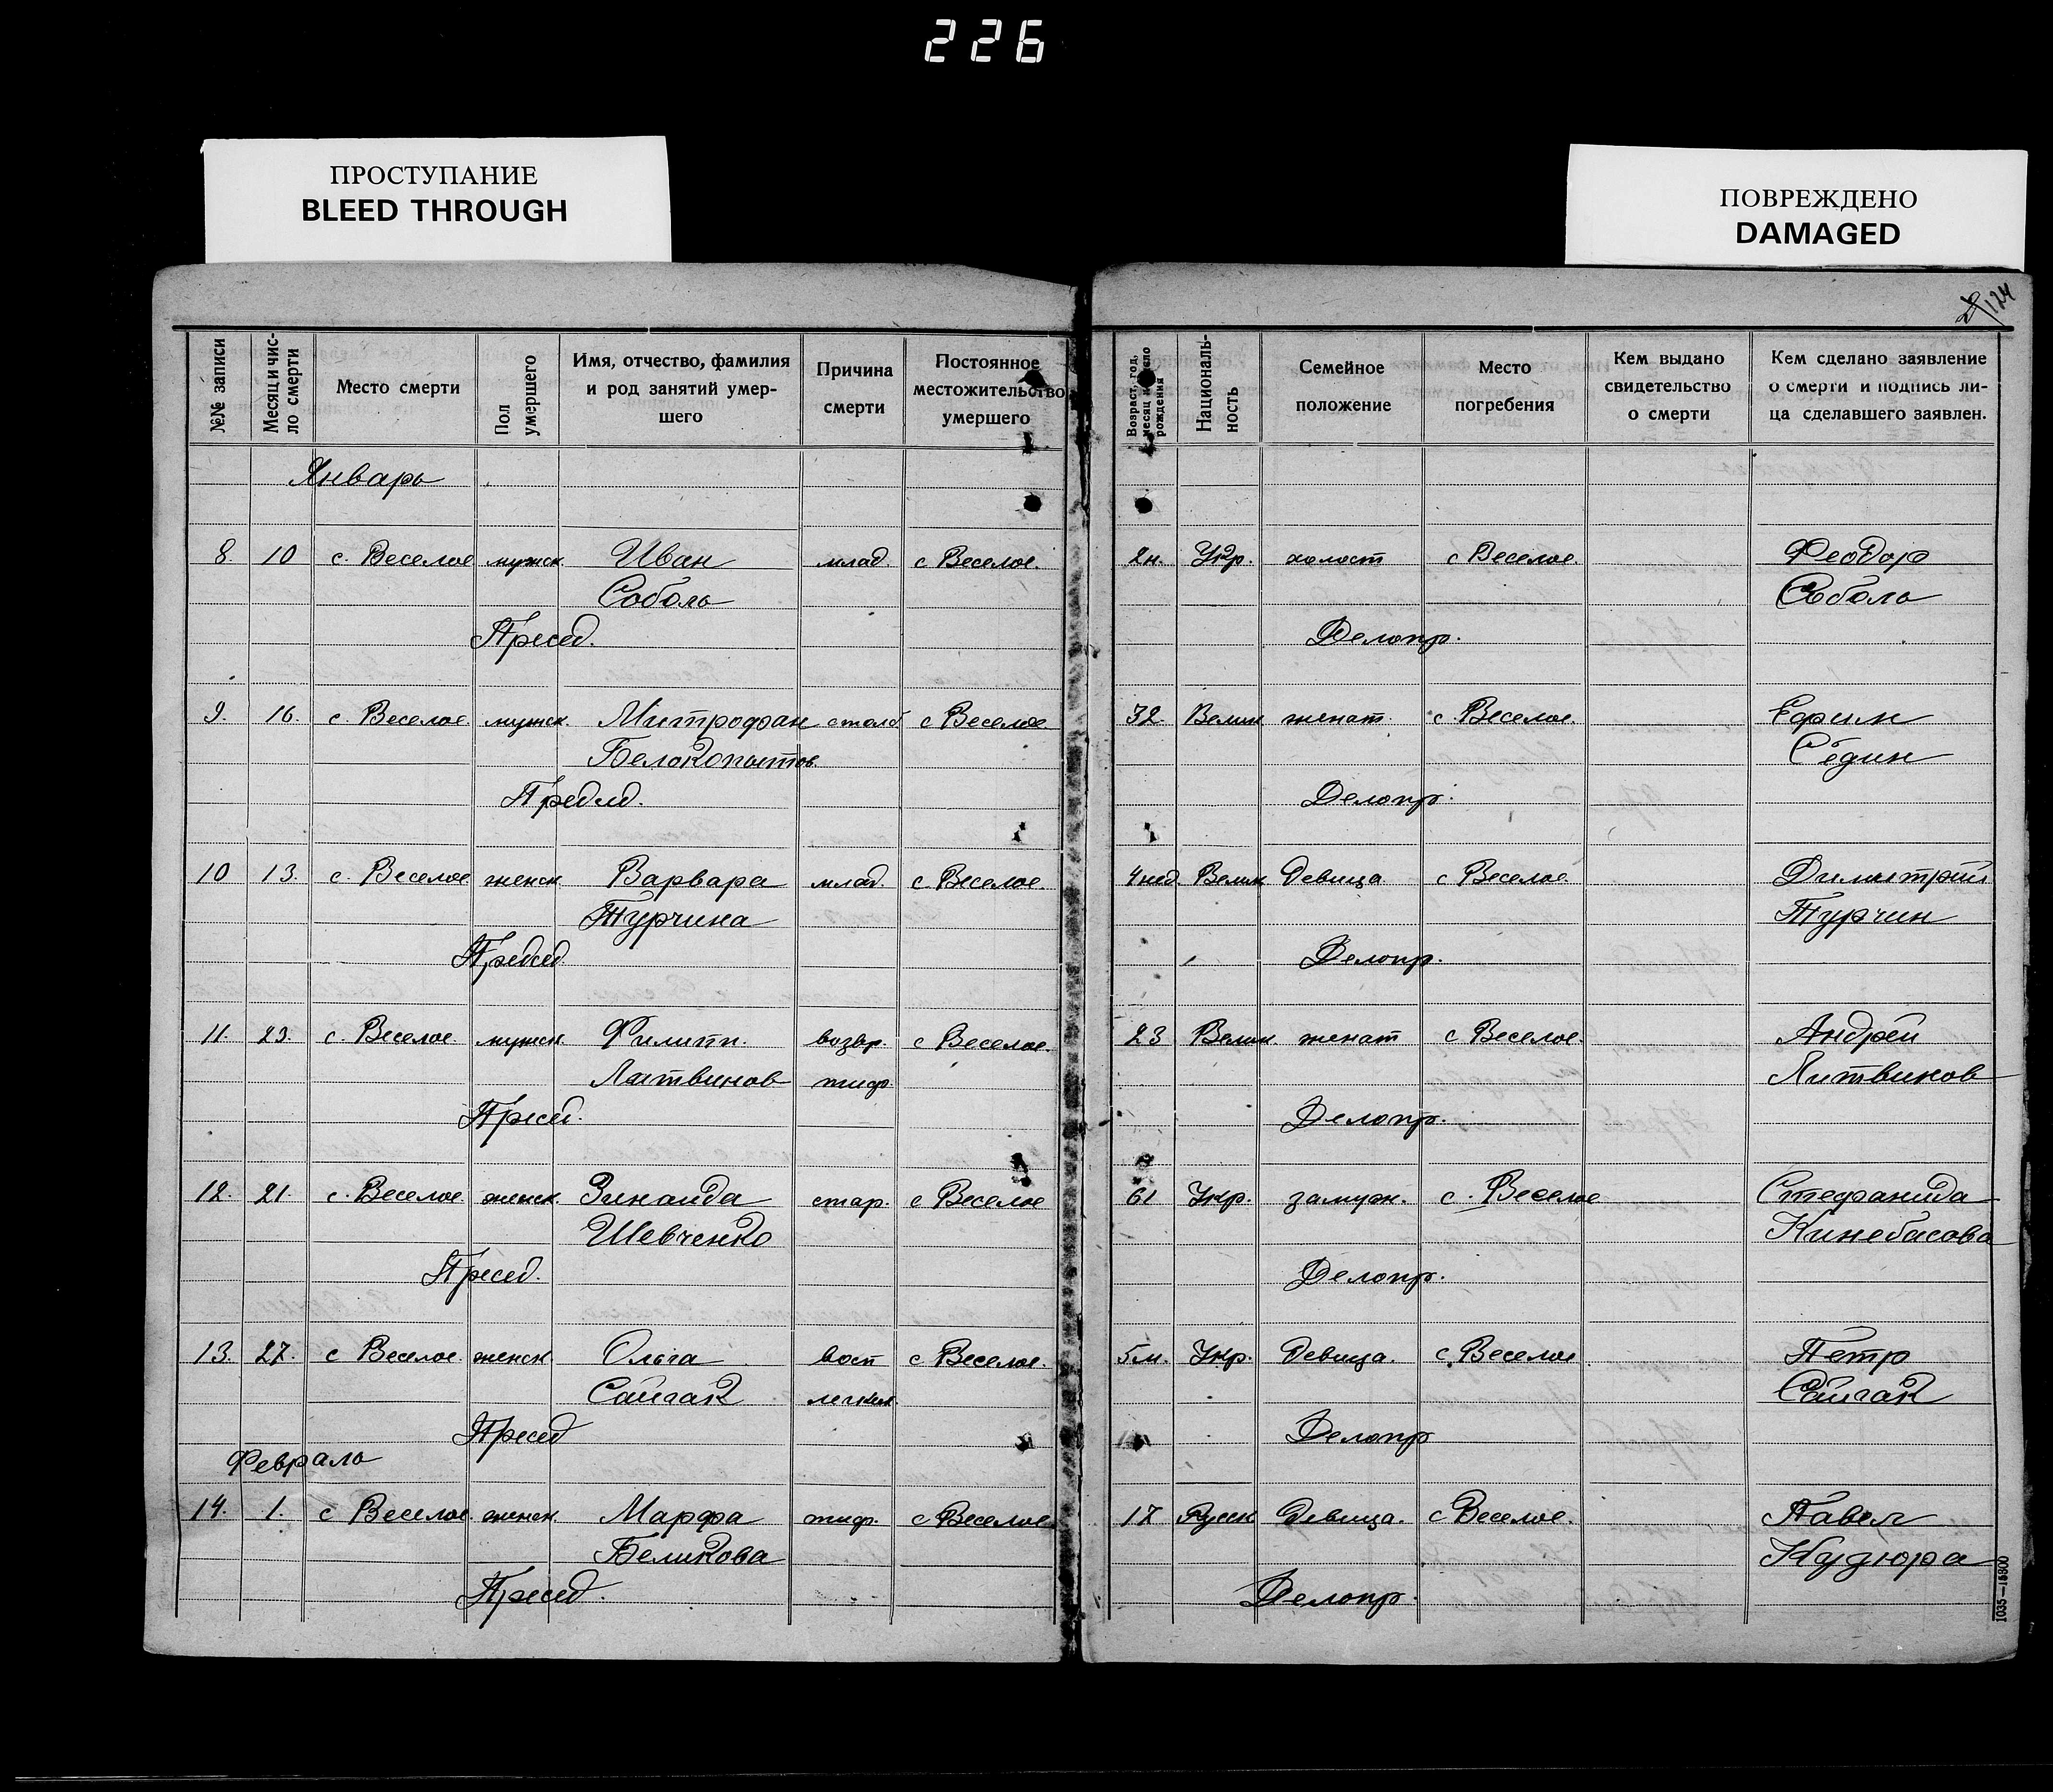 226
ПРОСТУПАНИЕ
BLEED THROUGH
ПОВРЕЖДЕНО
DAMAGED
124
№№ записи
Месяц и чис-
ло смерти
Место смерти
Пол
умершего
Имя, отчество, фамилия
и род занятий умер-
шего
Причина
смерти
Постоянное
местожительство
умершего
Возраст, год,
месяц и число
рождения
Националь-
ность
Семейное
положение
Место
погребения
Кем выдано
свидетельство
о смерти
Кем сделано заявление
о смерти и подпись ли-
ца сделавшего заявлен.
Январь
8. 10 с. Веселое мужск. Иван млад. с Веселое. 2н. Укр. холост с Веселое. Феодор
Соболь Соболь
Пресед. Делопр.
9. 16. с Веселое. мужск. Митрофан столб с Веселое 32. Велик женат. с. Веселое. Ефим
Белокопытов. Седин
Предсд. Делопр.
10 13. с. Веселое женск. Варвара млад. с Веселое. 4нед. Велик Девица с Веселое. Димитрий
Турчина Турчин
Председ. Делопр.
11. 23. с. Веселое. мужск. Филипп. возвр. с Веселое. 23 Велик. женат с Веселое. Андрей
Литвинов тиф. Литвинов
Пресед. Делопр.
12. 21 с. Веселое. женск. Зинаида стар. с Веселое 61 Укр. замуж. с. Веселое Стефанида
Шевченко Кинебасова
Пресед. Делопр.
13. 27. с Веселое. женск. Ольга восп с Веселое. 5м. Укр. Девица. с. Веселое Петр
Сайгак легких. Сайгак
Пресед Делопр
Февраль
14. 1. с Веселое. женск. Марфа тиф. с Веселое 17 Русск Девица. с Веселое. Павел
Беликова Кудюра
Пресед. Делопр.
1035—15800